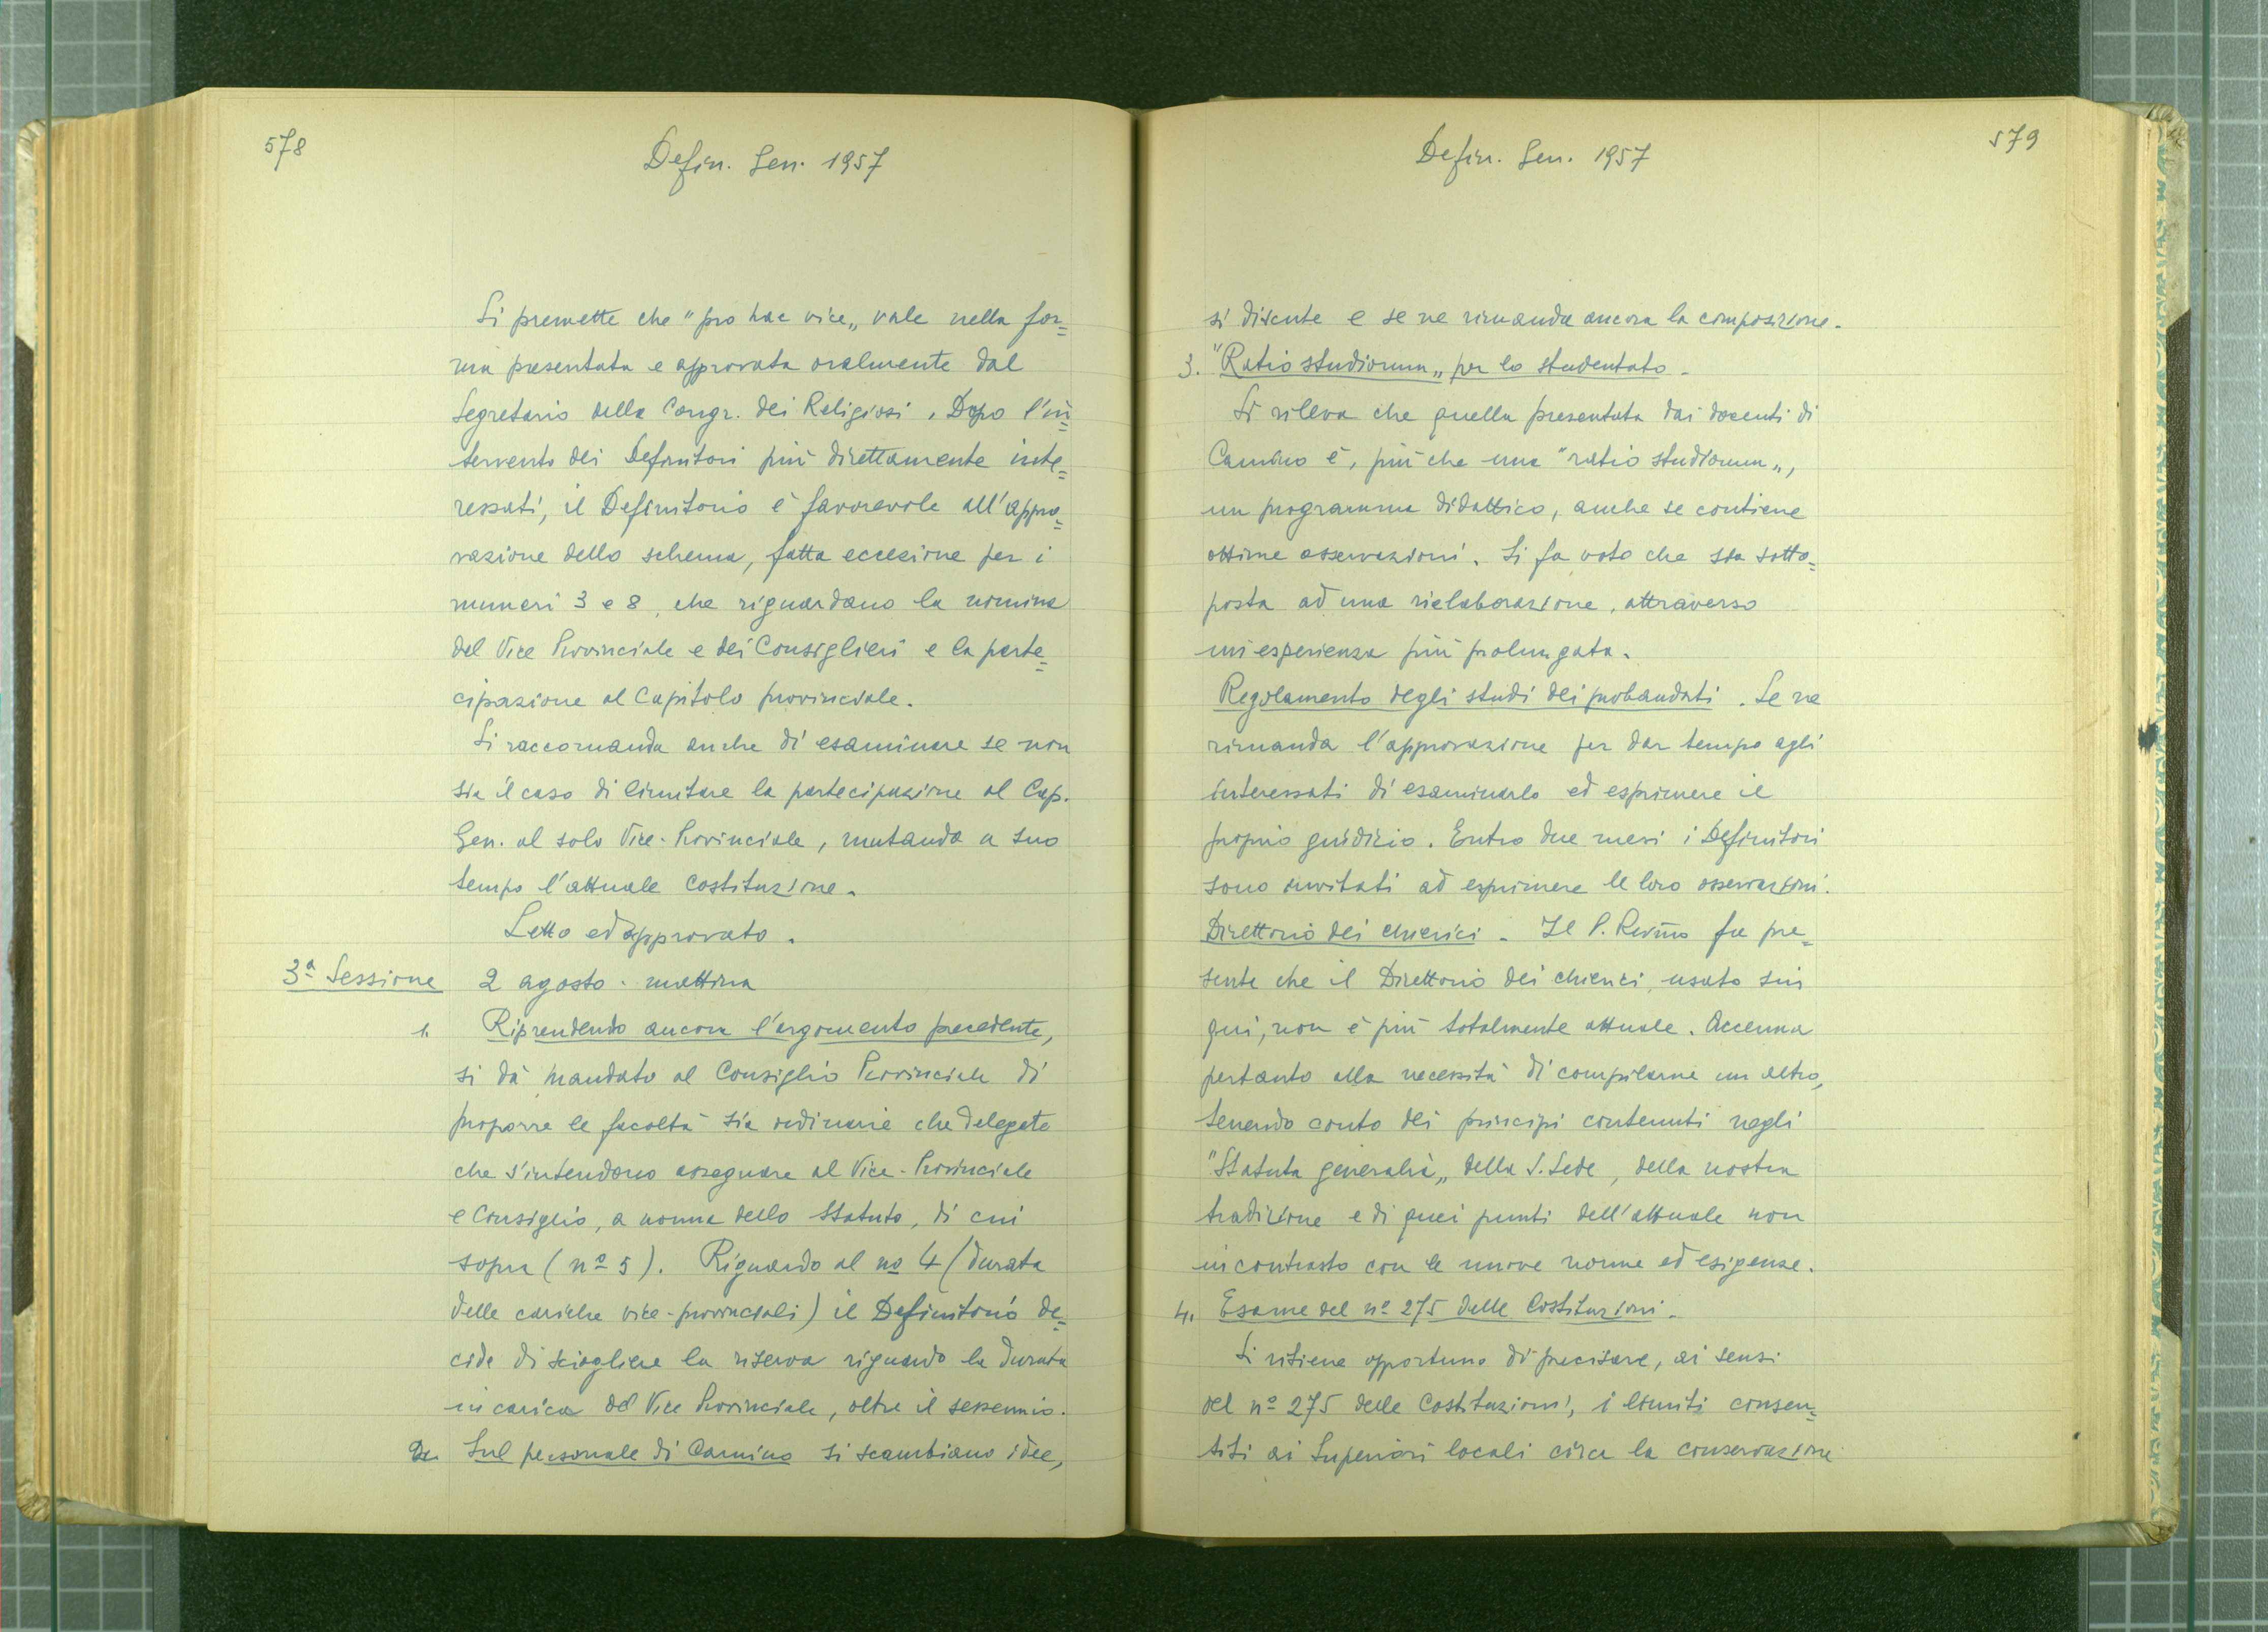 578
Defin. Gen. 1957
Si premette che "pro hac vice„ vale nella for=
ma presentata e approvata oralmente dal
Segretario della Congr. dei Religiosi. Dopo l'in=
tervento dei Definitori più direttamente inte=
ressati, il Definitorio è favorevole all'appro=
vazione dello schema, fatta eccezione per i
numeri 3 e 8, che riguardano la nomina
del Vice Provinciale e dei Consiglieri e la parte=
cipazione al Capitolo provinciale.
Si raccomanda anche di esaminare se non
sia il caso di limitare la partecipazione al Cap.
Gen. al solo Vice-Provinciale, mutando a suo
tempo l'attuale costituzione.
Letto ed approvato.
3ª Sessione 2 agosto - mattina
1. Riprendendo ancora l'argomento precedente,
si dà mandato al Consiglio Provinciale di
proporre le facoltà sia ordinarie che delegate
che s'intendono assegnare al Vice-Provinciale
e Consiglio, a norma dello Statuto, di cui
sopra (nº 5). Riguardo al nº 4 (durata
delle cariche vice-provinciali) il Definitorio de=
cide di sciogliere la riserva riguardo la durata
in carica del Vice Provinciale, oltre il sessennio.
2. Sul personale di Camino si scambiano idee,
579
Defin. Gen. 1957
si discute e se ne rimanda ancora la composizione.
3. "Ratio studiorum„ per lo studentato.
Si rileva che quella presentata dai docenti di
Camino è, più che una "ratio studiorum„,
un programma didattico, anche se contiene
ottime osservazioni. Si fa voto che sia sotto=
posta ad una rielaborazione, attraverso
un'esperienza più prolungata.
Regolamento degli studi dei probandati. Se ne
rimanda l'approvazione per dar tempo agli
interessati di esaminarlo ed esprimere il
proprio giudizio. Entro due mesi i Definitori
sono invitati ad esprimere le loro osservazioni.
Direttorio dei chierici. Il P. Rev̄mo fa pre=
sente che il Direttorio dei chierici, usato sin
qui, non è più totalmente attuale. Accenna
pertanto alla necessità di compilarne un altro,
tenendo conto dei principi contenuti negli
"Statuta generalia„ della S. Sede, della nostra
tradizione e di quei punti dell'attuale non
in contrasto con le nuove norme ed esigenze.
4. Esame del nº 275 delle Costituzioni.
Si ritiene opportuno di precisare, ai sensi
del nº 275 delle Costituzioni, i limiti consen=
titi ai Superiori locali circa la conservazione